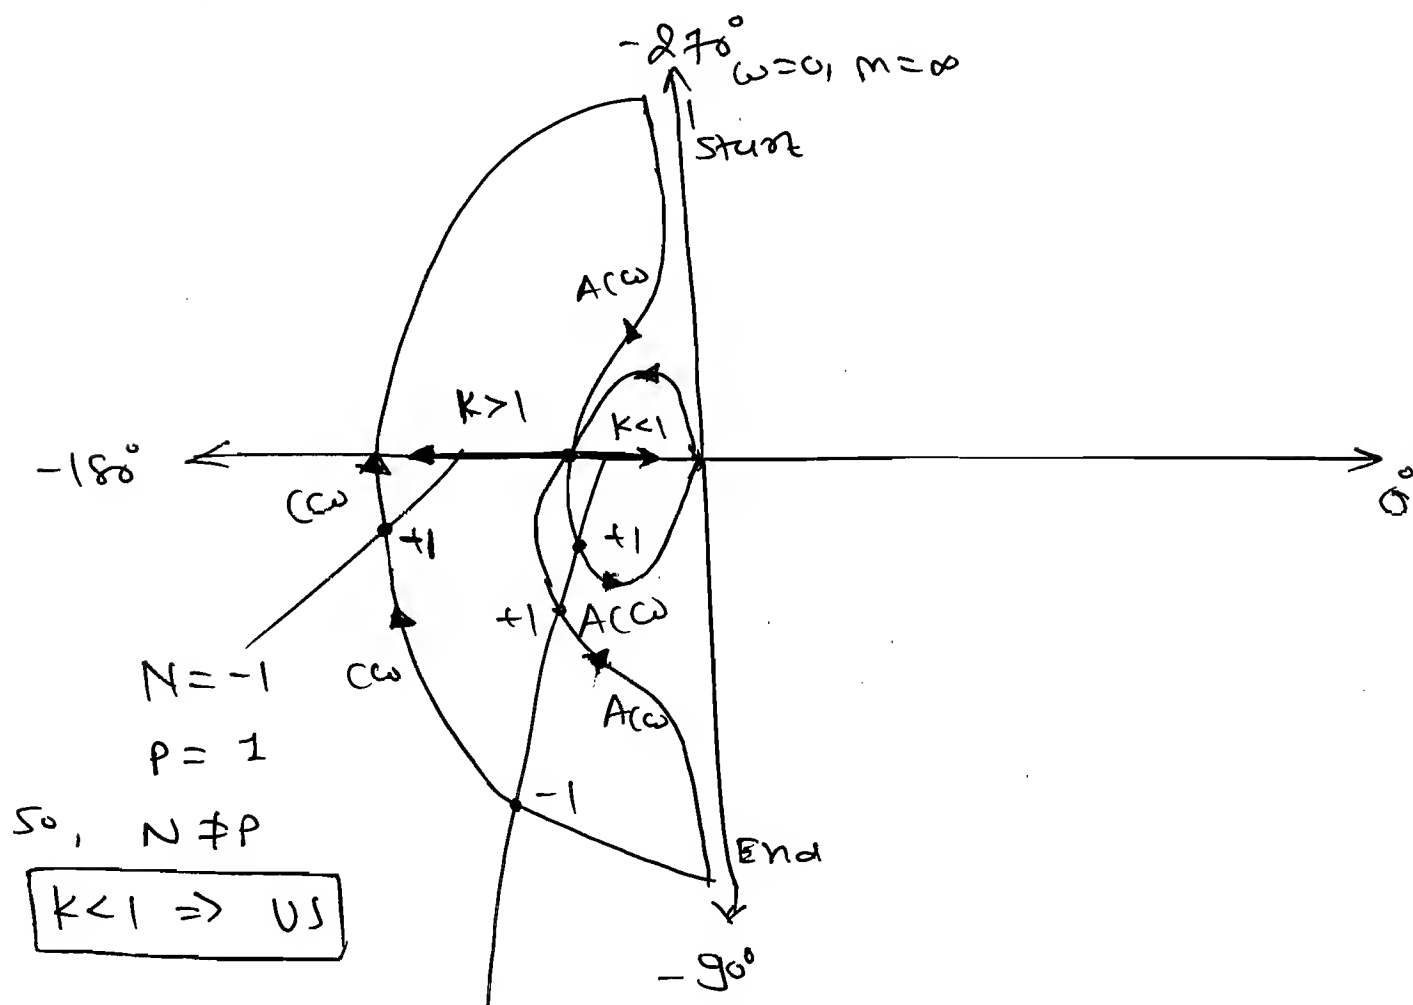 -270°
ω=0, m=∞
Start
ACW
K>1
K<1
-180°
0°
CCW
+1
+1
+1
ACCW
N=-1
CW
ACW
P=1
-1
So, N≠P
End
K<1 => US
-90°